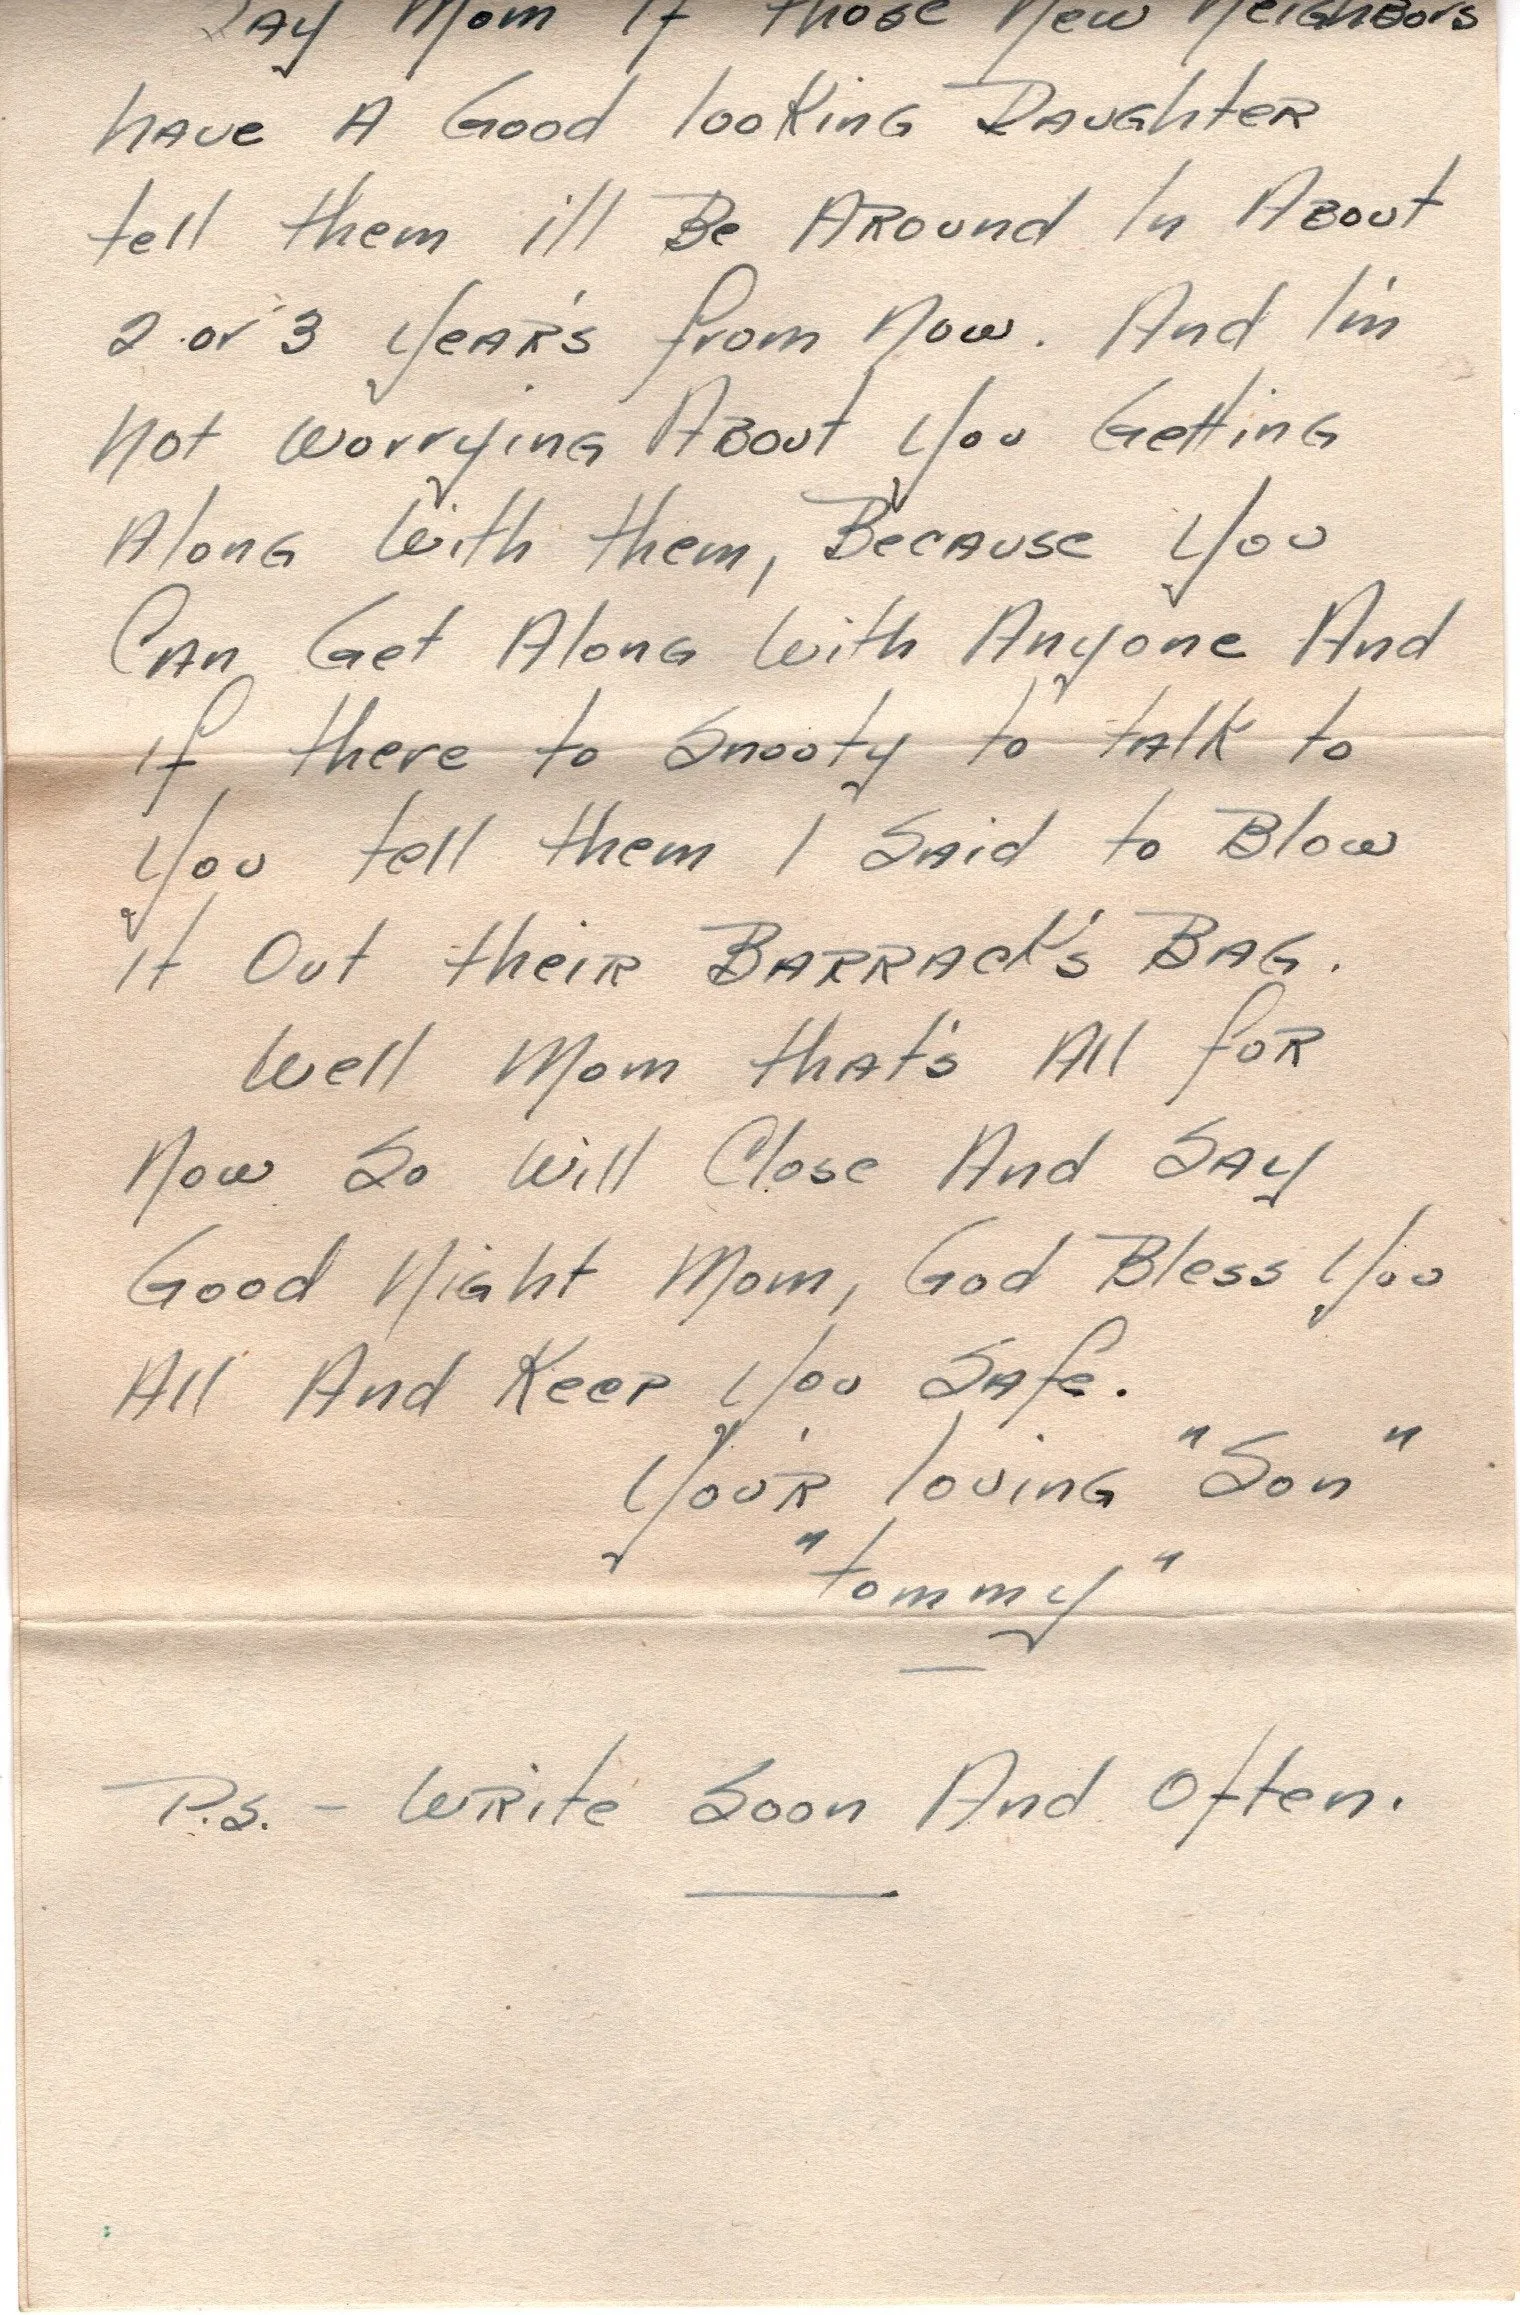 Say Mom If those New Neighbors
have A Good looking Daughter
tell them i'll Be Around In About
2 or 3 Year's from Now. And I'm
Not Worrying About You Getting
Along With them, Because You
Can Get Along With Anyone And
if there to Snooty to talk to
You tell them I Said to Blow
it Out their Barrack's Bag.
Well Mom that's All for
Now So Will Close And Say
Good Night Mom, God Bless You
All And Keep You Safe.
You'r loving "Son"
"tommy"
P.S. - Write Soon And Often.